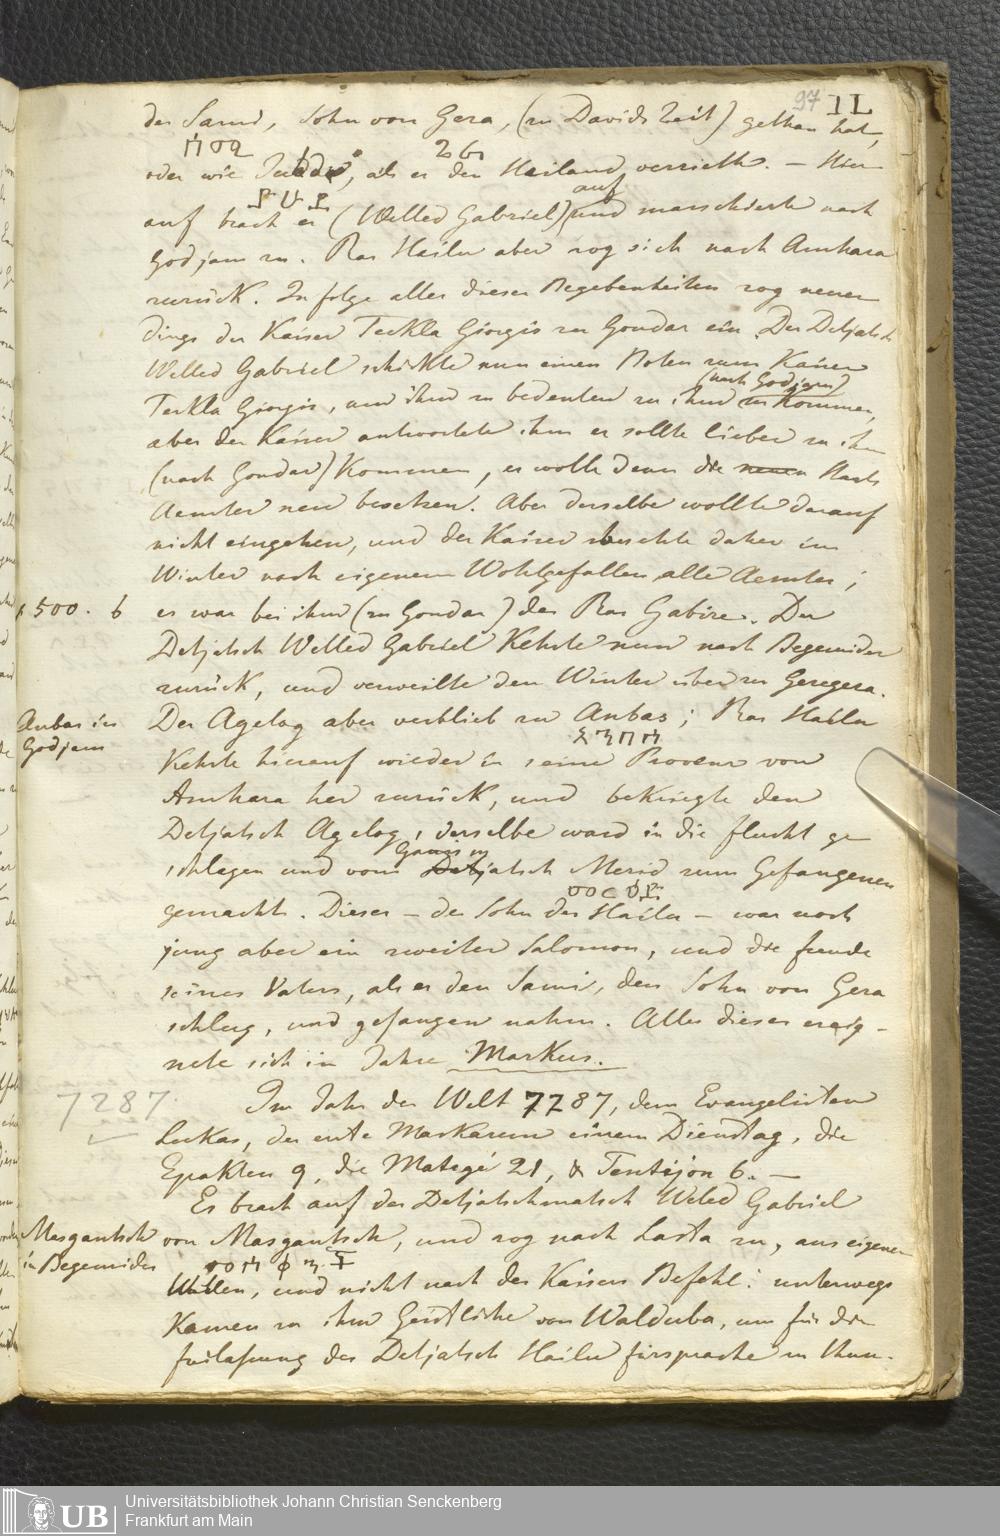 97 IL
der Samri, Sohn von Gera, (zu Davids Zeit) gethan hat,
oder wie Judas, als er den Heiland verrieth. — Hier
auf brach er (Welled Gabriel) auf und marschierte nach
Godjam zu. Ras Hailu aber zog sich nach Amhara
zurück. In folge aller dieser Begebenheiten zog neuer
dings der Kaiser Teckla Giorgis zu Gondar ein. Der Detjatsch
Welled Gabriel schickte nun einen Boten zum Kaiser
(nach Godjam)
Teckla Giorgis, um ihm zu bedeuten zu ihm zu kommen,
aber der Kaiser antwortete ihm er sollte lieber zu ihm
(nach Gondar) kommen, er wolle denn die neuen Staats
Aemter neu besetzen. Aber derselbe wollte darauf
nicht eingehen, und der Kaiser besetzte daher im
Winter nach eigenem Wohlgefallen alle Aemter;
500. b es war bei ihm (zu Gondar) der Ras Gabire. Der
Detjatsch Welled Gabriel kehrte nun nach Begemider
zurück, und verweilte den Winter über zu Geregera.
Anbas in Godjam
Der Agelog aber verblieb zu Anbas; Ras Hailu
kehrte hierauf wieder in seine Provinz von
Amhara her zurück, und bekriegte den
Detjatsch Agelog, derselbe ward in die flucht ge
schlagen und vom Detjatsch Merid zum Gefangenen
gemacht. Dieser — der Sohn des Hailu — war noch
jung aber ein zweiter Salomon, und die freude
seines Vaters, als er den Samri, den Sohn von Gera
schlug, und gefangen nahm. Alles dieses ereig-
nete sich im Jahre Markus.
7287
Im Jahr der Welt 7287, dem Evangelisten
Lukas, der erste Maskarem einem Dienstag, die
Epakten 9, die Matqé 21, & Tentijon 6. —
Es brach auf der Detjatschmatsch Weled Gabriel
Masgantsch in Begemider
von Masgantsch, und zog nach Lasta zu, aus eigenem
Willen, und nicht nach des Kaisers Befehl: unterwegs
kamen zu ihm Geistliche von Walduba, um für die
freilassung des Detjatsch Hailu fürsprache zu thun.
Universitätsbibliothek Johann Christian Senckenberg
Frankfurt am Main
UB